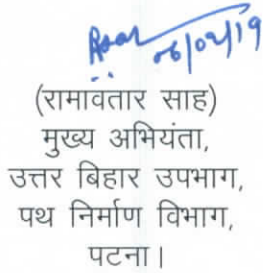 06/02/19
(रामावतार साह)
मुख्य अभियंता,
उत्तर बिहार उपभाग,
पथ निर्माण विभाग,
पटना।